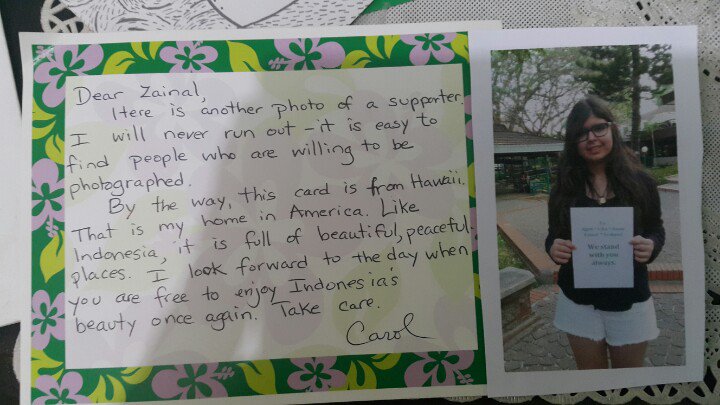 Dear Zainal,
Here is another photo of a supporter.
I will never run out – it is easy to
find people who are willing to be
photographed.
By the way, this card is from Hawaii.
That is my home in America. Like
Indonesia, it is full of beautiful, peaceful
places. I look forward to the day when
you are free to enjoy Indonesia's
beauty once again. Take care.
Carol
We stand
with you
always.